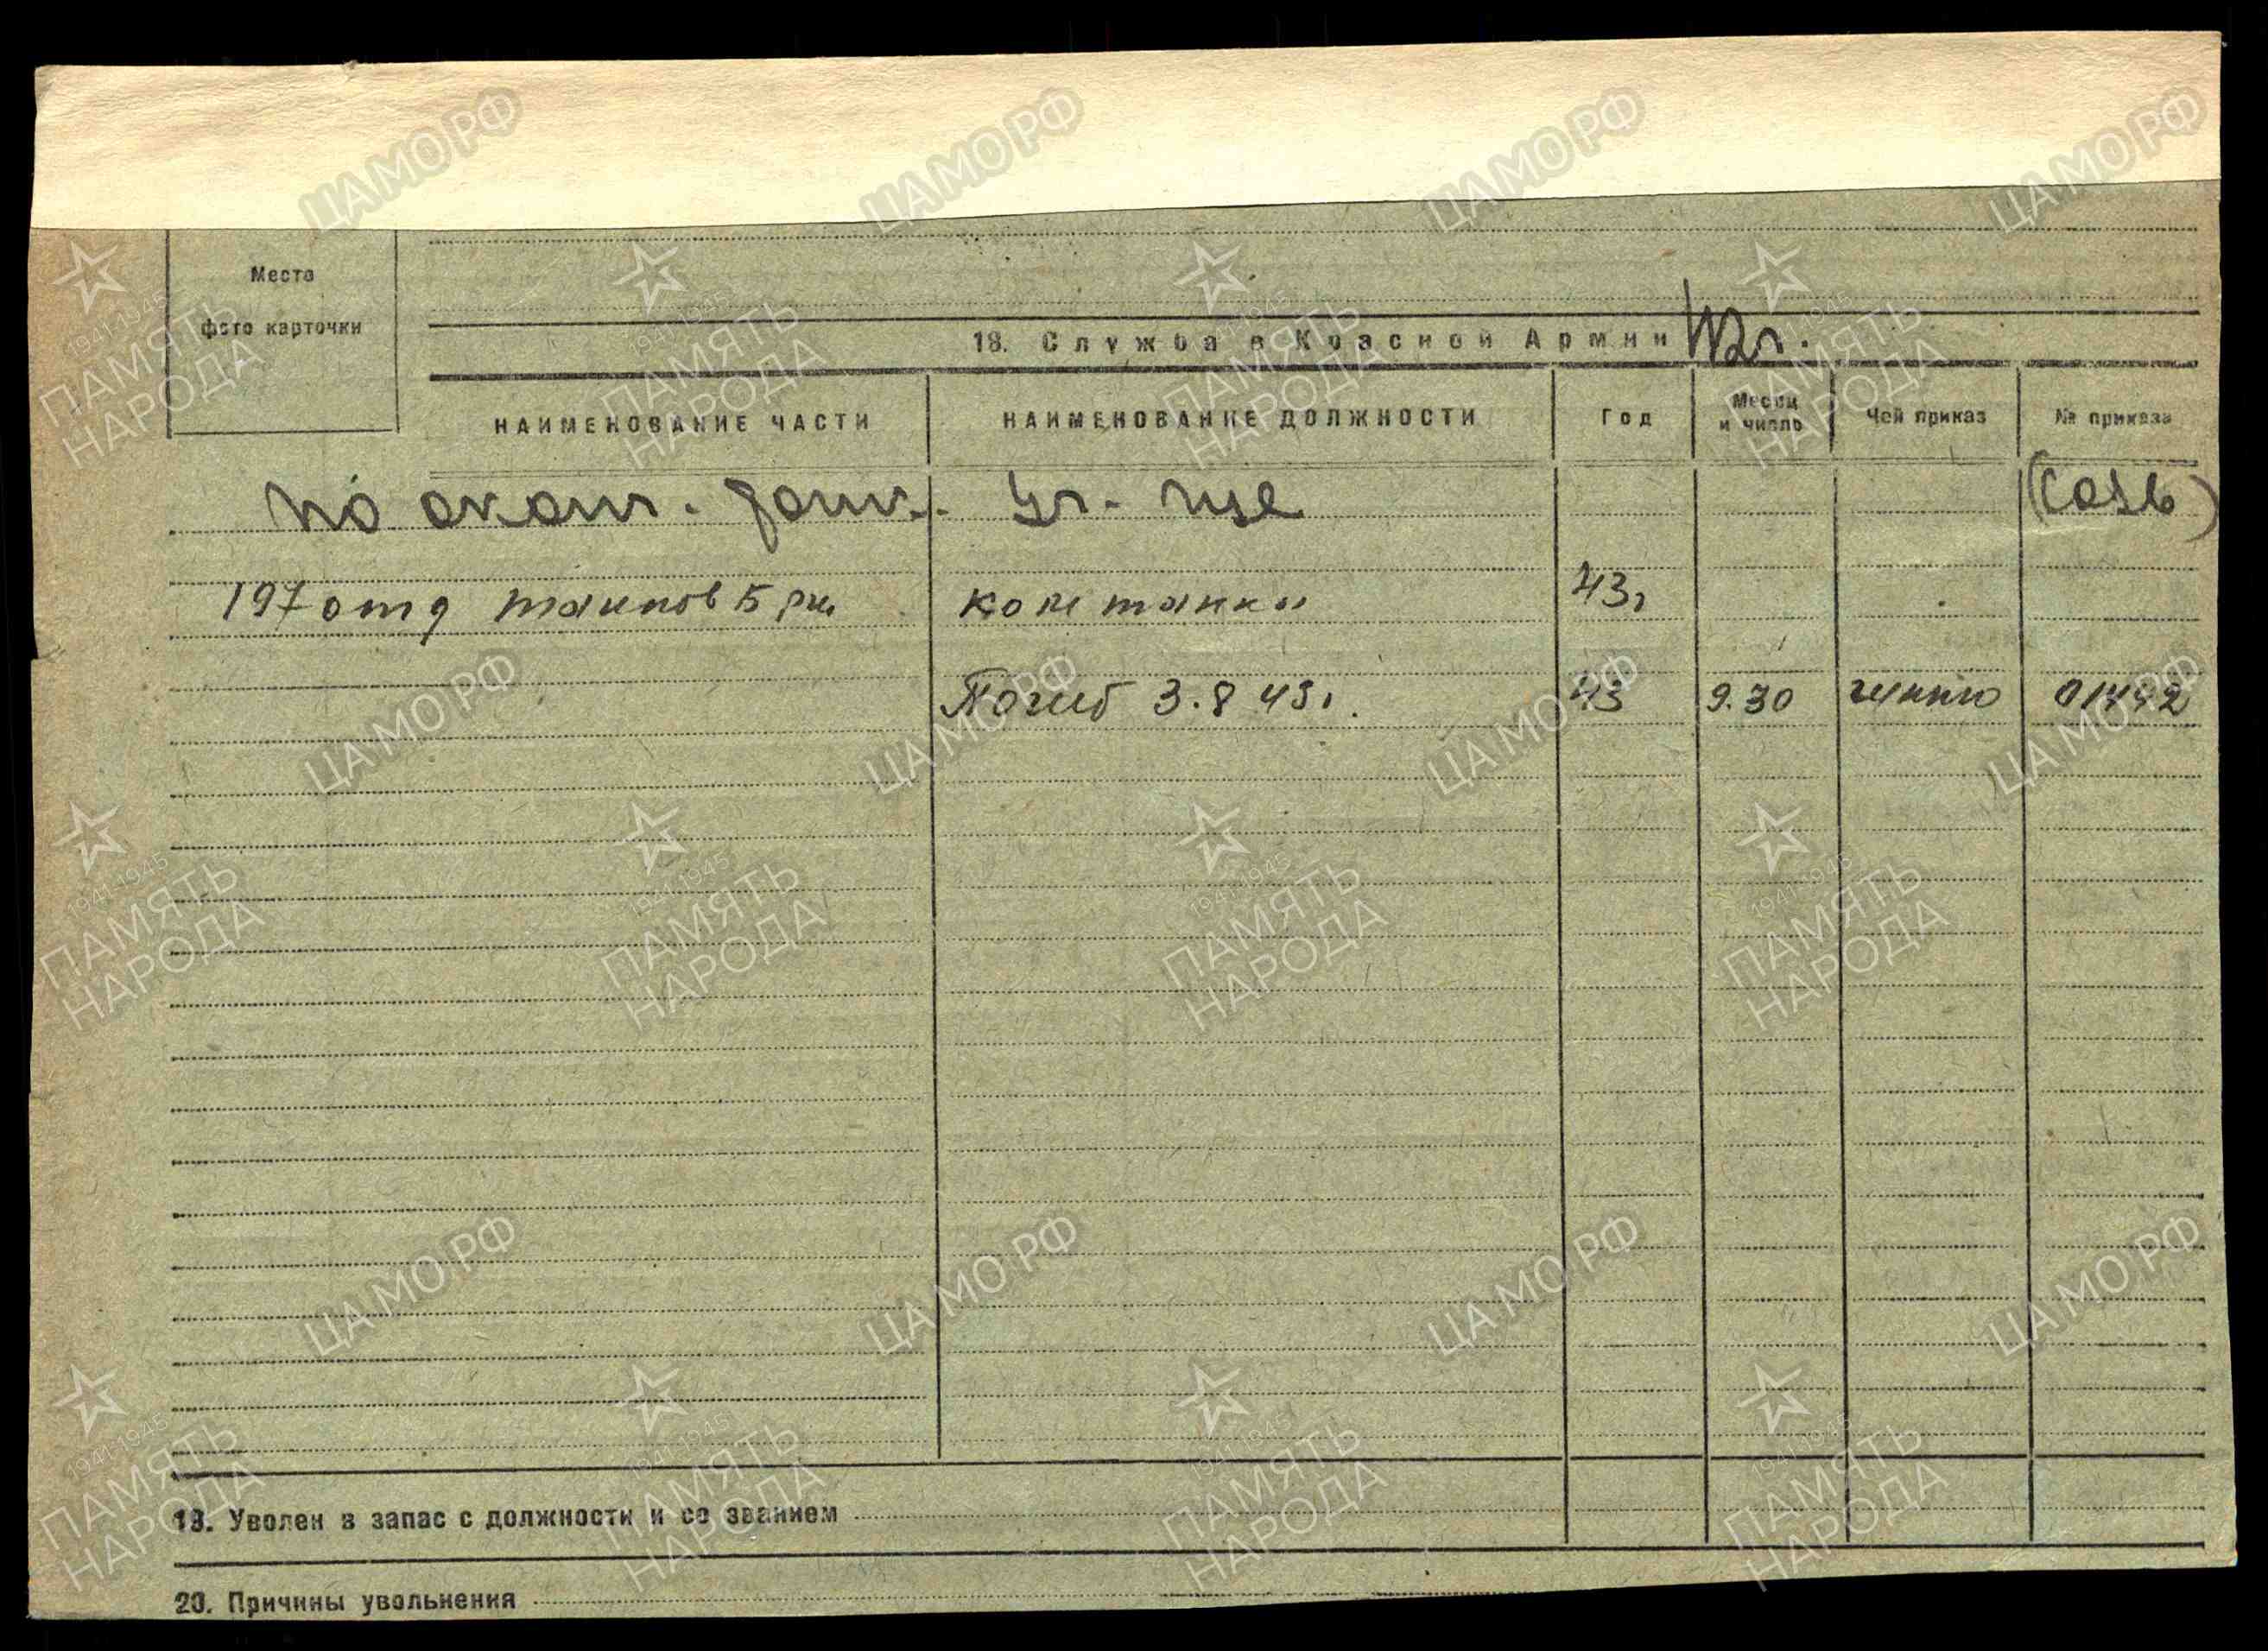 Место
фото карточки
18. Служба в Красной Армии 42г.
НАИМЕНОВАНИЕ ЧАСТИ НАИМЕНОВАНИЕ ДОЛЖНОСТИ Год Месяц и число Чей приказ № приказа
По оконч. уч-ще
197 отд танков Бри ком танка 43г
Погиб 3.8 43г. 43 9.30 гункю 01442
19. Уволен в запас с должности и со званием
20. Причины увольнения
ЦАМО РФ
1941-1945
ПАМЯТЬ
НАРОДА